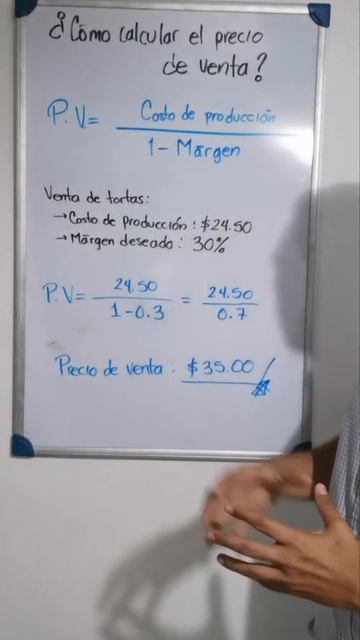 ¿Cómo calcular el precio
de venta?
P.V= Costo de producción
1 - Márgen
Venta de tortas:
→ Costo de producción: $24.50
→ Márgen deseado: 30%
P.V= 24.50 = 24.50
1-0.3 0.7
Precio de venta: $35.00